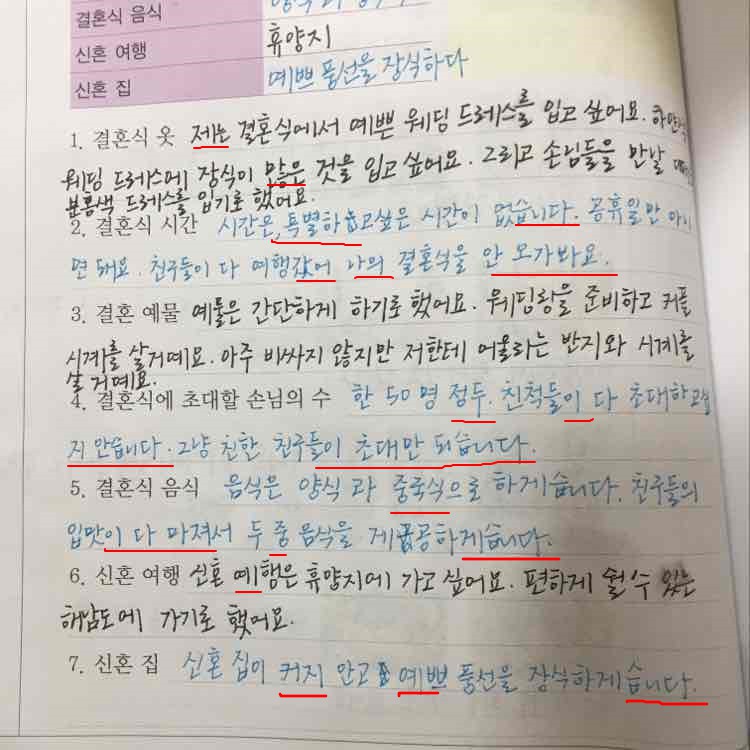 결혼식 음식
신혼 여행 휴양지
신혼 집 예쁘 풍선을 장식하다
1. 결혼식 옷 제는 결혼식에서 예쁜 웨딩 드레스를 입고 싶어요. 하얀색
웨딩 드레스에 장식이 많은 것을 입고 싶어요. 그리고 손님들을 만날
분홍색 드레스를 입기로 했어요.
2. 결혼식 시간 시간은, 특별하고싶은 시간이 없습니다. 공휴일만 아이
면 돼요. 친구들이 다 여행갔어 나의 결혼식을 안 오가봐요.
3. 결혼 예물 예물은 간단하게 하기로 했어요. 웨딩랑을 준비하고 커플
시계를 살거예요. 아주 비싸지 않지만 저한테 어울라는 반지와 시계를
살 거예요.
4. 결혼식에 초대할 손님의 수 한 50명 정두. 친척들이 다 초대하고싶
지 안습니다. 그냥 친한 친구들이 초대만 되습니다.
5. 결혼식 음식 음식은 양식과 중국식으로 하게습니다. 친구들의
입맛이 다 마져서 두 중 음식을 게공하게습니다.
6. 신혼 여행 신혼 예행은 휴양지에 가고 싶어요. 편하게 쉴 수 있는
해남도에 가기로 했어요.
7. 신혼 집 신혼 집이 커지 안고 예쁘 풍선을 장식하게습니다.